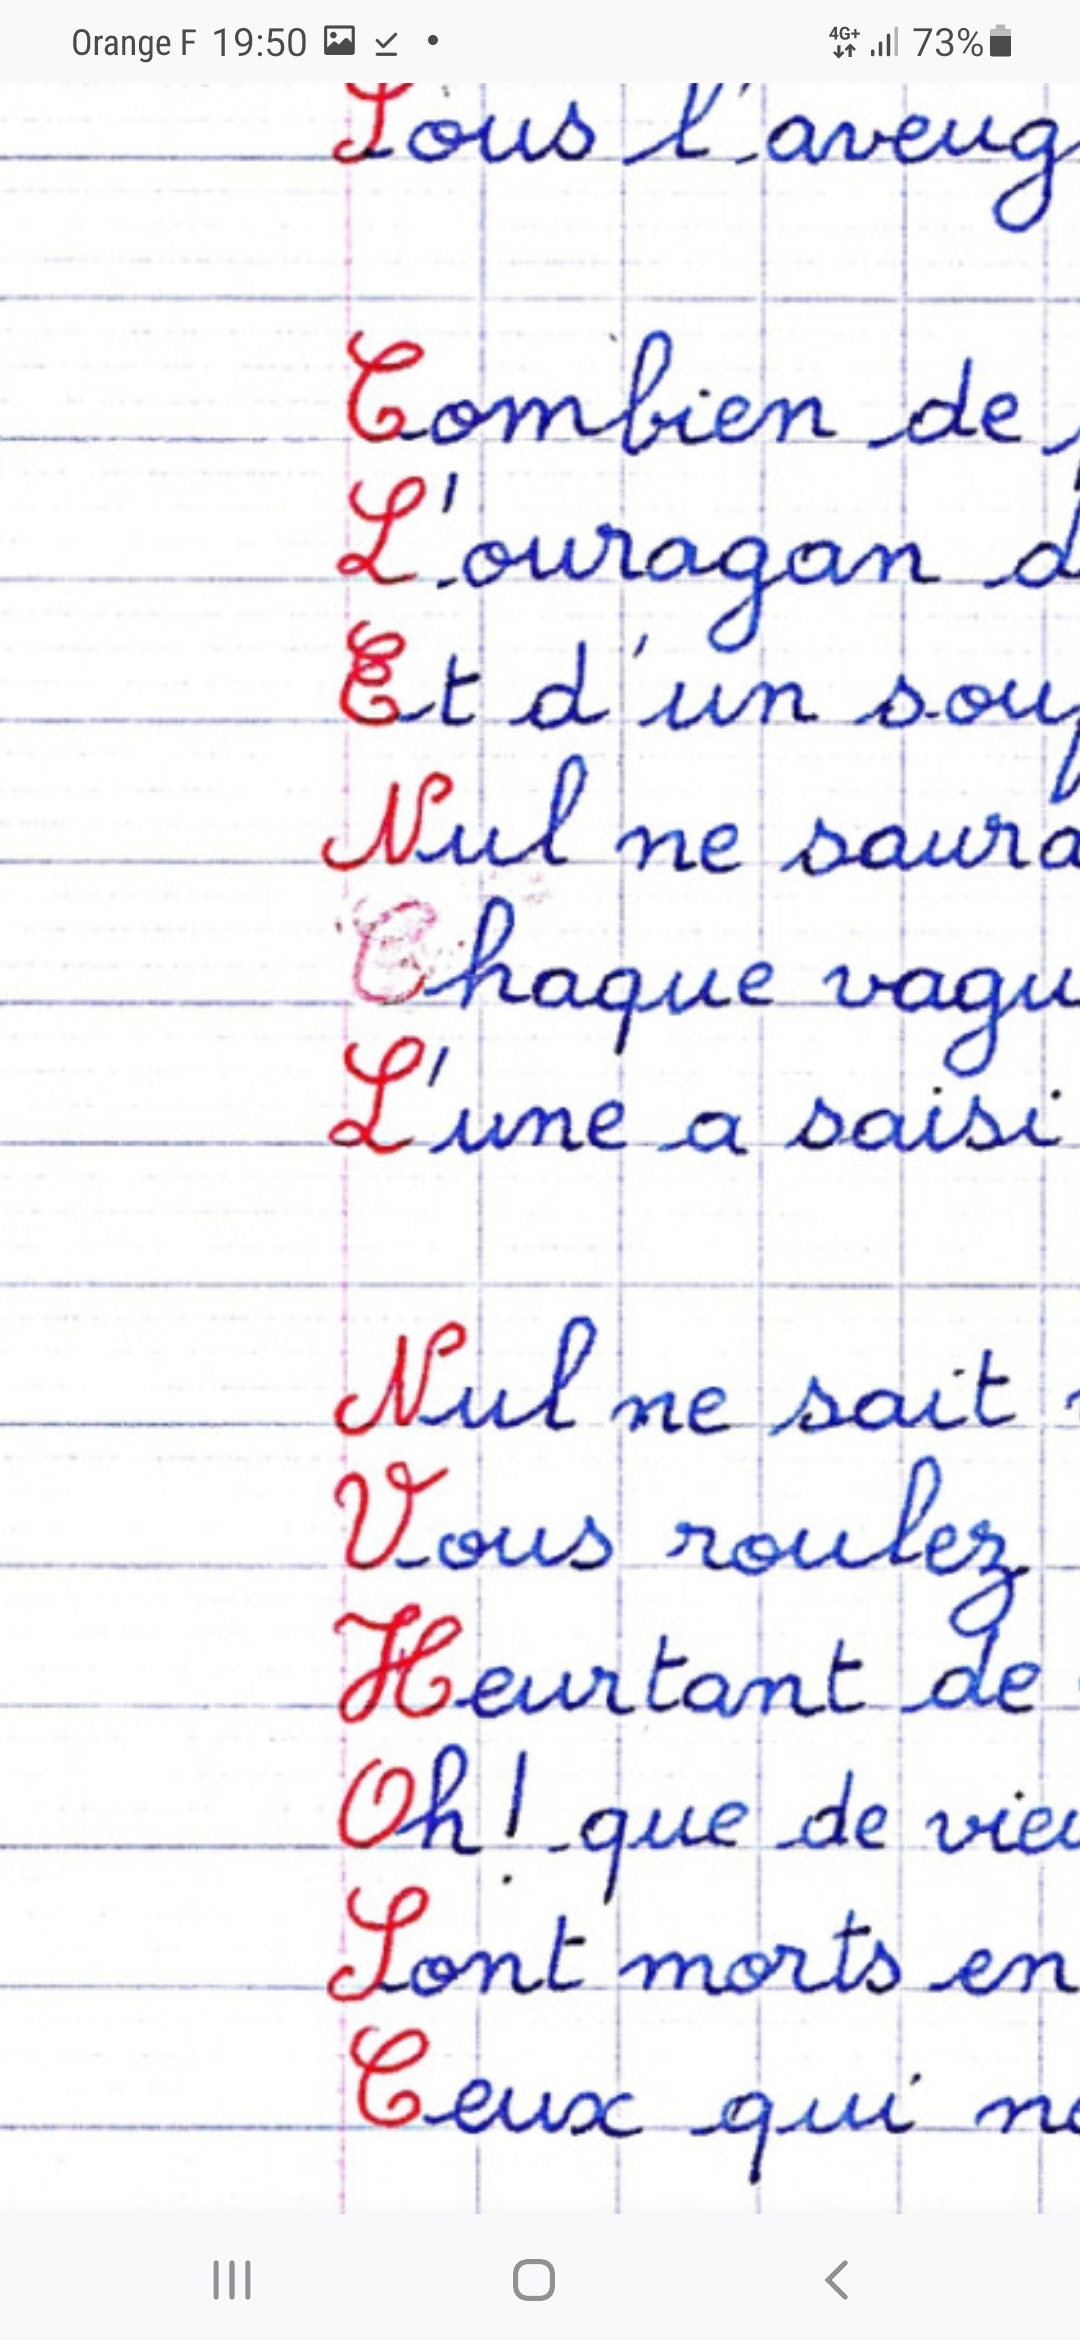 Orange F 19:50 4G+ 73%
Sous l'aveug
Combien de
L'ouragan d
Et d'un souf
Nul ne saura
Chaque vagu
L'une a saisi
Nul ne sait
Vous roulez
Heurtant de
Oh! que de vieu
Sont morts en
Ceux qui ne